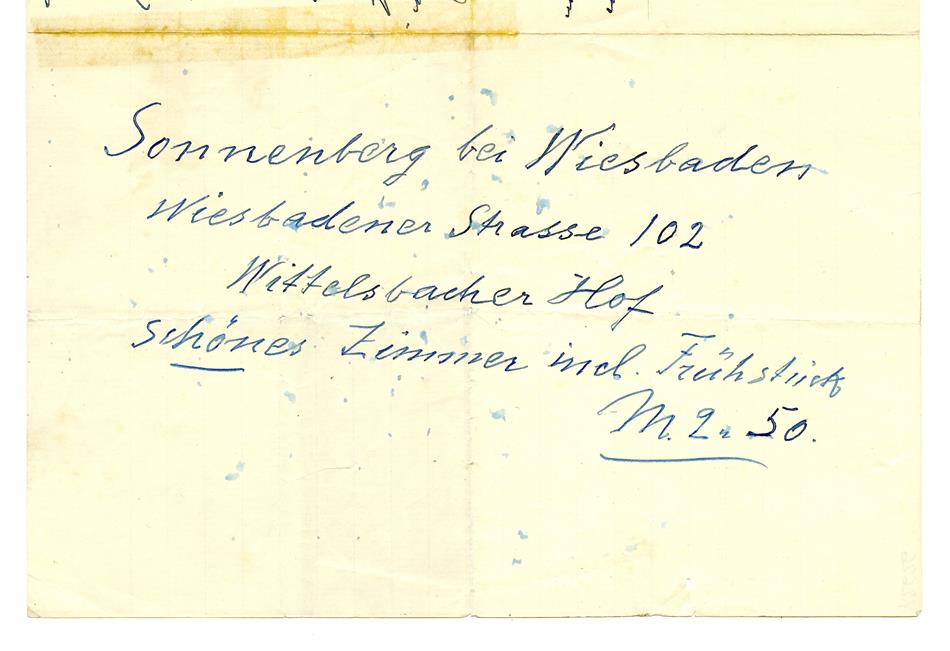 Sonnenberg bei Wiesbaden
Wiesbadener Strasse 102
Wittelsbacher Hof
schönes Zimmer incl. Frühstück
M. 2.50.